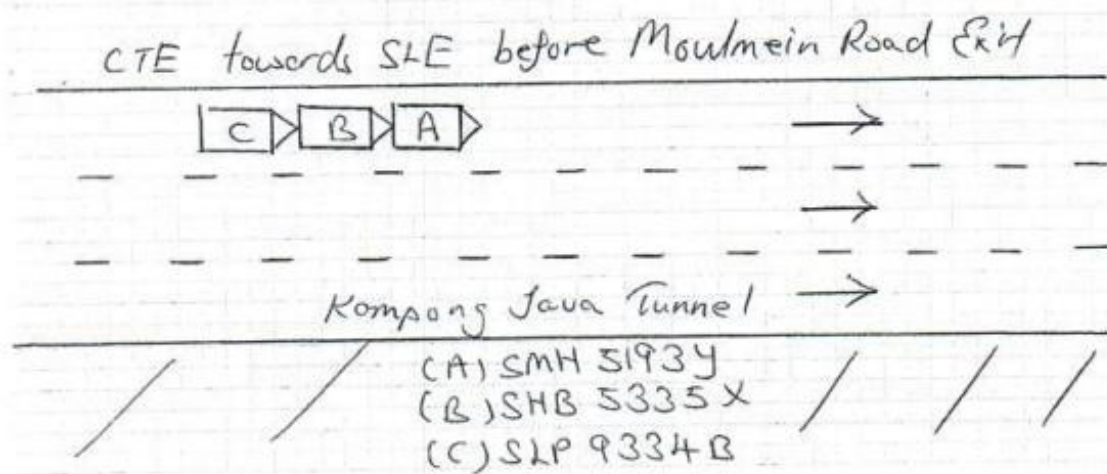 CTE towards SLE before Moulmein Road Exit
C B A
Kampong Java Tunnel
(A) SMH 5193Y
(B) SHB 5335X
(C) SLP 9334B